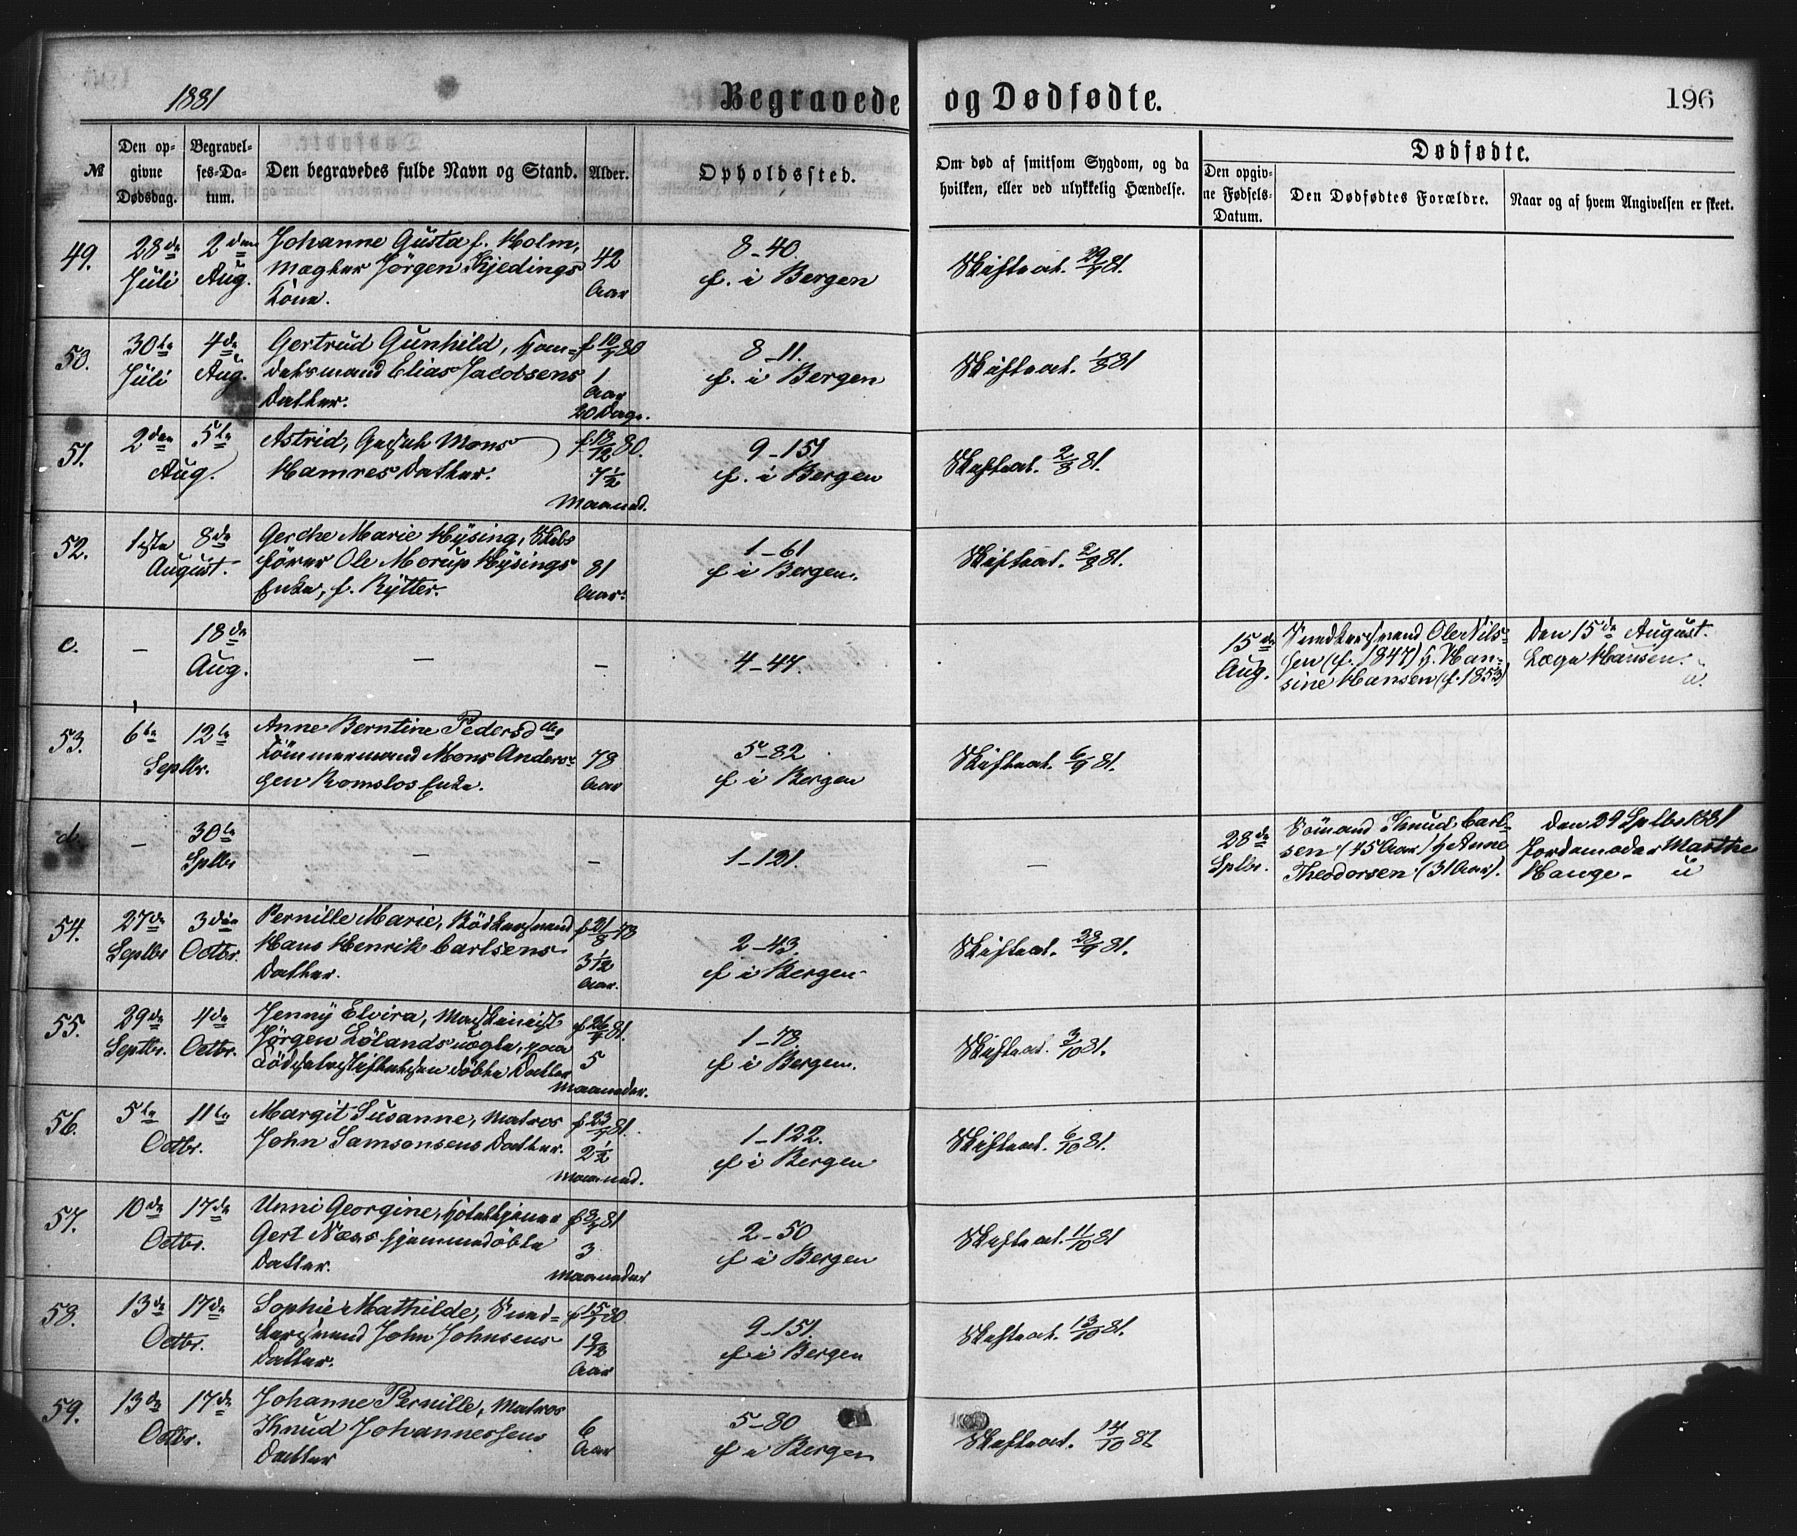 1881
Begravede og Dødfødte.
196
№
Den opgivne Dødsdag.
Begravelses-Datum.
Den begravedes fulde Navn og Stand.
Alder.
Opholdssted.
Om død af smitsom Sygdom, og da hvilken, eller ved ulykkelig Hændelse.
Dødfødte.
Den opgivne Fødsels-Datum.
Den Dødfødtes Forældre.
Naar og af hvem Angivelsen er skeet.
49. 28de Juli 2den Aug.
Johanne Gusta f. Holm,
Mægler Jörgen Kjedings
Kone.
42 Aar
8-40.
f. i Bergen
Skifteat. 29/7 81.
50. 30te Juli 4de Aug.
Gertrud Gunhild,
Elias Jacobsens
Datter.
f 10/7 80
1 Aar 20 Dage.
8-11.
f. i Bergen
Skifteat. 1/8 81
51. 2den 5te Aug.
Astrid, Mons
Hamres Datter.
f. 18/12 80.
7½ Maaned.
9-151
f. i Bergen
Skifteat. 2/8 81.
52. 1ste 8de August.
Gerche Marie Hÿsing, Skibs
förer Ole Morup Hÿsings
Enke, f. Rÿtter.
81 Aar.
1-61
f i Bergen.
Skifteat. 2/8 81.
c. - 18de Aug. - -
4-47.
15de Aug.
Ole Nils-
sen (f. 1847) H. Han-
sine Hansen (f. 1853)
Den 15de August.
Læge Hansen.
u.
53. 6te 12te Septbr.
Anne Berntine Pedersd
Tömmermand Mons Anders-
sen Romslos Enke.
78 Aar
5-82
f i Bergen
Skifteat. 6/9 81.
d. - 30te Septbr - -
1-131.
-
28de Septbr.
Sömand Knud Carl-
sen (45 Aar) H Anne
Theodorsen. (31 Aar).
Den 29 Septbr 1881
Jordemoder Marthe
Hauge. u
54. 27de Septbr 3die Octbr.
Pernille Marie, Bödkersvend
Hans Henrik Carlsens
Datter.
f 21/8 78
3 1/12 Aar.
2-43.
f i Bergen
Skifteat. 28/9 81.
55. 29de Septbr. 4de Octbr.
Jenny Elvira, Maskinist
Jörgen Lölands uægte, paa
Födselsstiftelsen döbte Datter
f 26/4 81.
5 Maaneder.
1-78.
f i Bergen.
Skifteat. 3/10 81.
56. 5te 11te Octbr.
Margit Susanne, Matros
John Samsonsens Datter.
f 23/7 81.
2½ Maaned.
1-122.
f i Bergen
Skifteat. 6/10 81.
57. 10de 17de Octbr.
Unni Georgine, Hotelkjener
Gert Næss hjemmedöbte
Datter.
81
3 Maaneder
2-50
f i Bergen
Skifteat. 11/10 81
58. 13de 17de Octbr.
Sophie Mathilde, Sned-
kersvend John Johnsens
Datter.
80
Aar
9-151.
f i Bergen
Skifteat. 13/10 81.
59. 13de 17de Octbr.
Johanne Pernille, Matros
Knud Johannessens
Datter
6 Aar
5-80
f i Bergen
Skifteat. 14/10 81